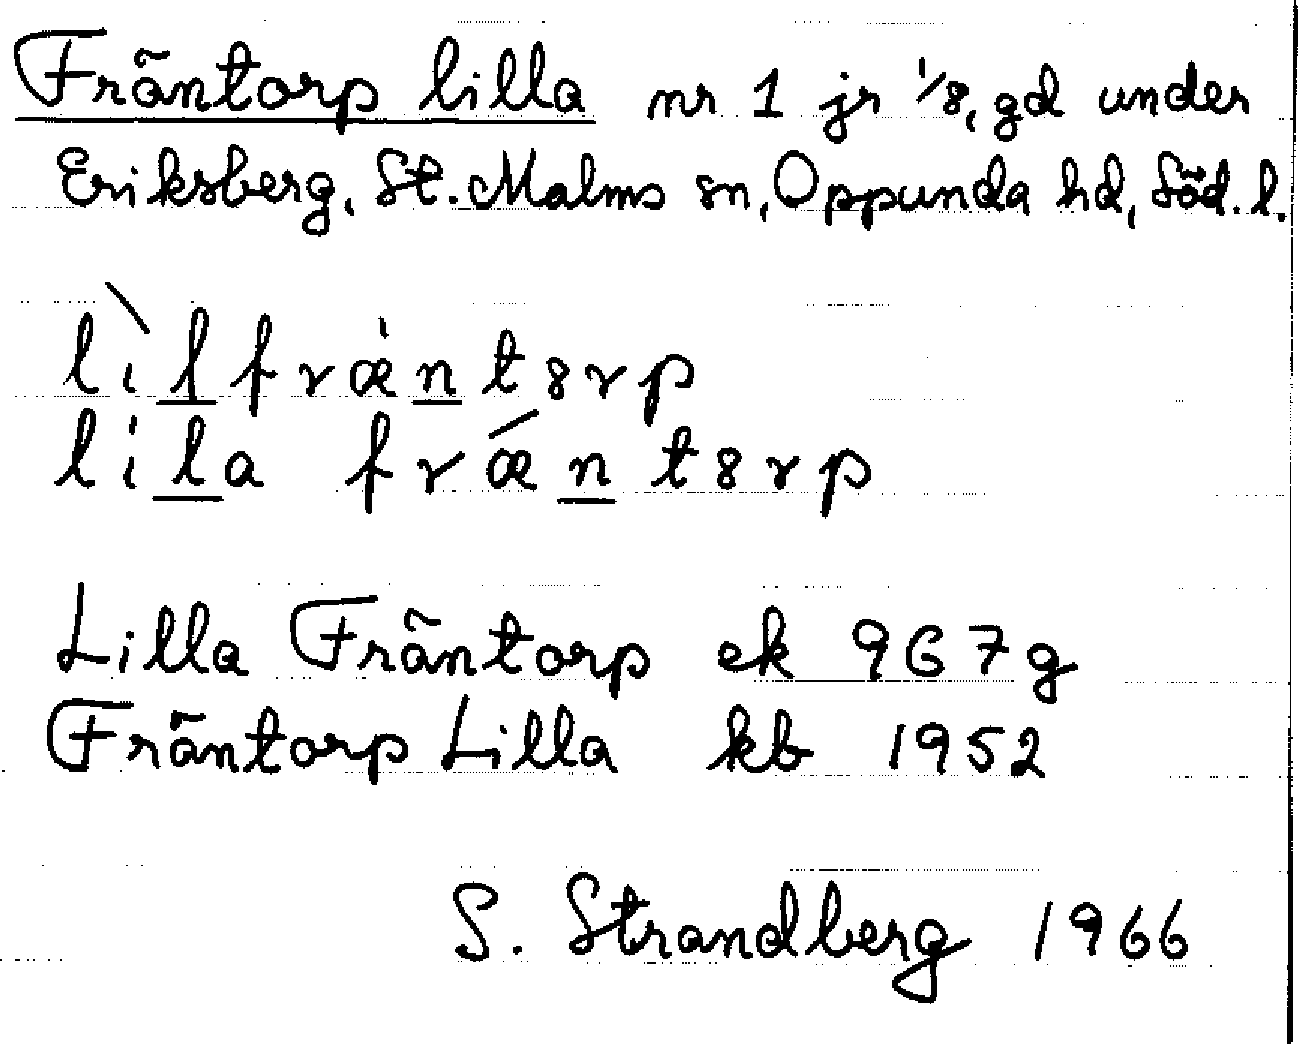 Fräntorp lilla nr 1 jr 1/8, gd under
Eriksberg, St. Malms sn, Oppunda hd, Söd. l.
lìlfræntsrp
lila fræntsrp
Lilla Fräntorp ek 967g
Fräntorp Lilla kb 1952
S. Strandberg 1966